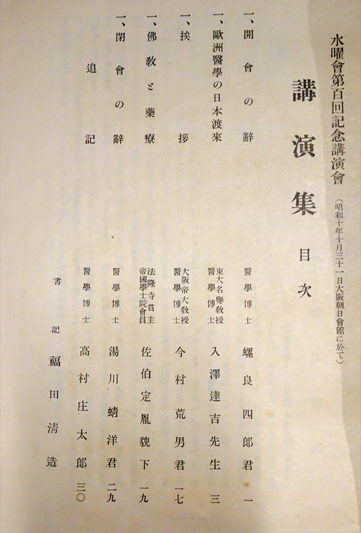 水曜會第百回記念講演會(昭和十年十月三十一日大阪朝日會館に於て)
講演集 目次
一、開會の辭 醫學博士 螺良四郎君 一
一、歐洲醫學の日本渡來 東大名譽教授 醫學博士 入澤達吉先生 三
一、挨拶 大阪帝大教授 醫學博士 今村荒男君 一七
一、佛敎と藥療 法隆寺貫主 帝國學士院會員 佐伯定胤貌下 一九
一、閉會の辭 醫學博士 湯川蜻洋君 二九
追記 醫學博士 高村庄太郎 三〇
書記 福田淸造